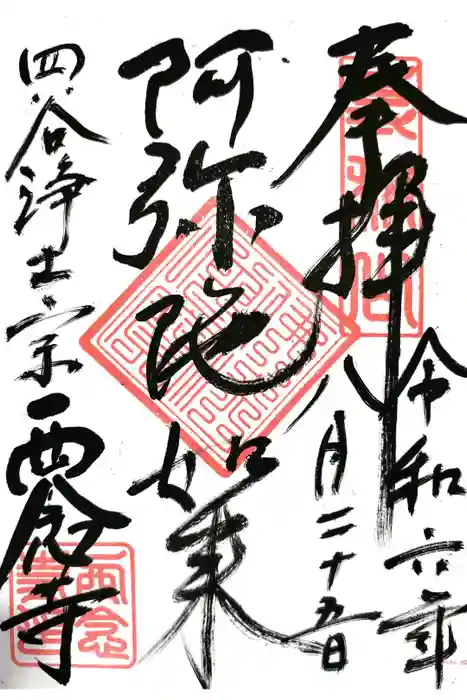 奉拝
令和六年
八月二十五日
阿弥陀如来
四谷浄土宗西念寺
西念